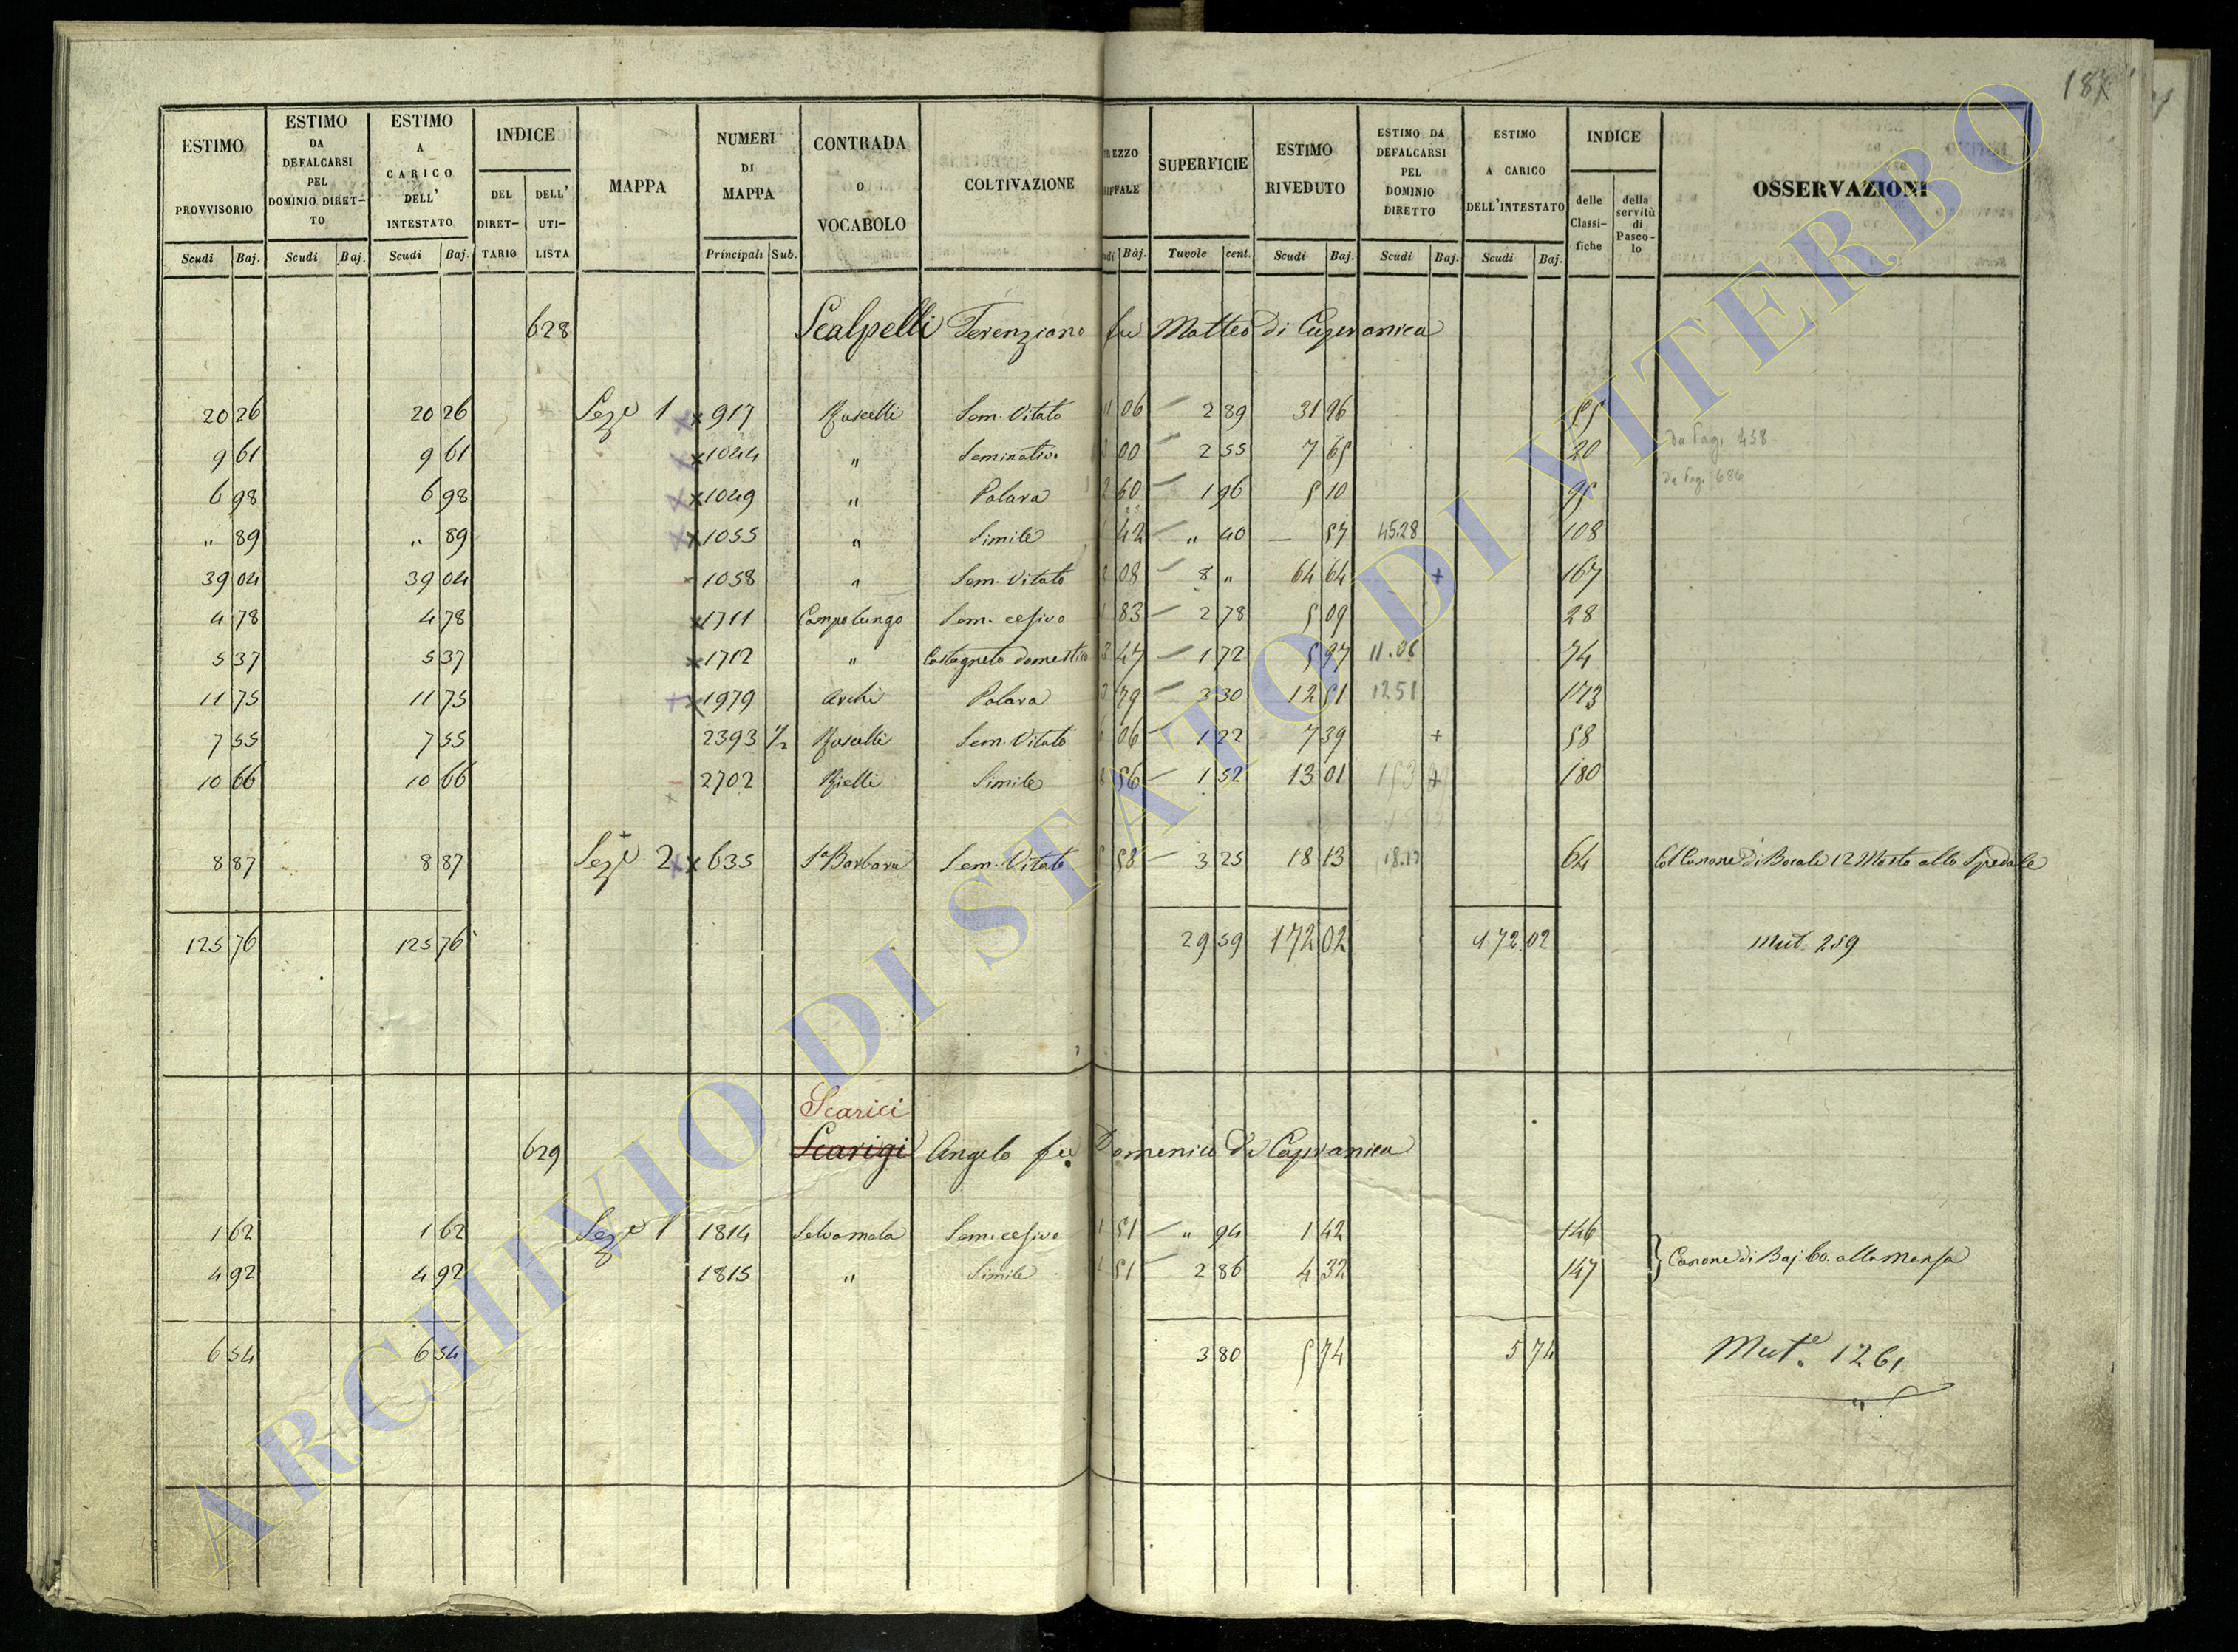 187
ESTIMO PROVVISORIO | ESTIMO DA DEFALCARSI PEL DOMINIO DIRETTO | ESTIMO A CARICO DELL' INTESTATO | INDICE | MAPPA | NUMERI DI MAPPA | CONTRADA O VOCABOLO | COLTIVAZIONE | SUPERFICIE | ESTIMO RIVEDUTO | ESTIMO DA DEFALCARSI PEL DOMINIO DIRETTO | ESTIMO A CARICO DELL'INTESTATO | INDICE | OSSERVAZIONI
DEL DIRET-TARIO | DELL' UTI-LISTA | delle Classi-fiche | della servitù di Pasco-lo
Scudi | Baj. | Scudi | Baj. | Scudi | Baj. | Principali | Sub. | Baj. | Tavole | cent. | Scudi | Baj. | Scudi | Baj. | Scudi | Baj.
628 Scalpelli Terenziano fu Matteo di Capranica
20 26 | 20 26 | Sez.e 1 | 917 | Ruscelli | Sem. Vitato | 11 06 | 2 89 | 31 96 | 55
9 61 | 9 61 | 1044 | " | Seminativo | 3 00 | 2 55 | 7 65 | 20 | da Pag. 458
6 98 | 6 98 | 1049 | " | Palara | 2 60 | 1 96 | 5 10 | 95 | da Pag. 686
" 89 | " 89 | 1055 | " | Simile | 1 42 | " 40 | — 57 | 45.28 | 108
39 04 | 39 04 | 1058 | " | Sem. Vitato | 8 08 | 8 " | 64 64 | + | 167
4 78 | 4 78 | 1711 | Campolungo | Sem. cesivo | 1 83 | 2 78 | 5 09 | 28
5 37 | 5 37 | 1712 | " | Castagneto domestico | 3 47 | 1 72 | 5 97 | 11.06 | 74
11 75 | 11 75 | 1979 | Archi | Palara | 3 79 | 3 30 | 12 51 | 12 51 | 173
7 55 | 7 55 | 2393 1/2 | Ruscelli | Sem. Vitato | 6 06 | 1 22 | 7 39 | + | 58
10 66 | 10 66 | 2702 | Rielli | Simile | 8 56 | 1 52 | 13 01 | + | 180
8 87 | 8 87 | Sez.e 2 | 635 | S.a Barbara | Sem. Vitato | 5 58 | 3 25 | 18 13 | 18.13 | 64 | Col Canone di Bocale 12 Mosto allo Spedale
125 76 | 125 76 | 29 59 | 172 02 | 172 02 | Mut. 259
Scarici
629 Scarigi Angelo fu Domenico di Capranica
1 62 | 1 62 | Sez.e 1 | 1814 | Selvamala | Sem. cesivo | 1 51 | " 94 | 1 42 | 146
4 92 | 4 92 | 1815 | " | Simile | 1 51 | 2 86 | 4 32 | 147 | Canone di Baj. 60. alla Mensa
6 54 | 6 54 | 3 80 | 5 74 | 5 74 | Mut.e 1261
ARCHIVIO DI STATO DI VITERBO